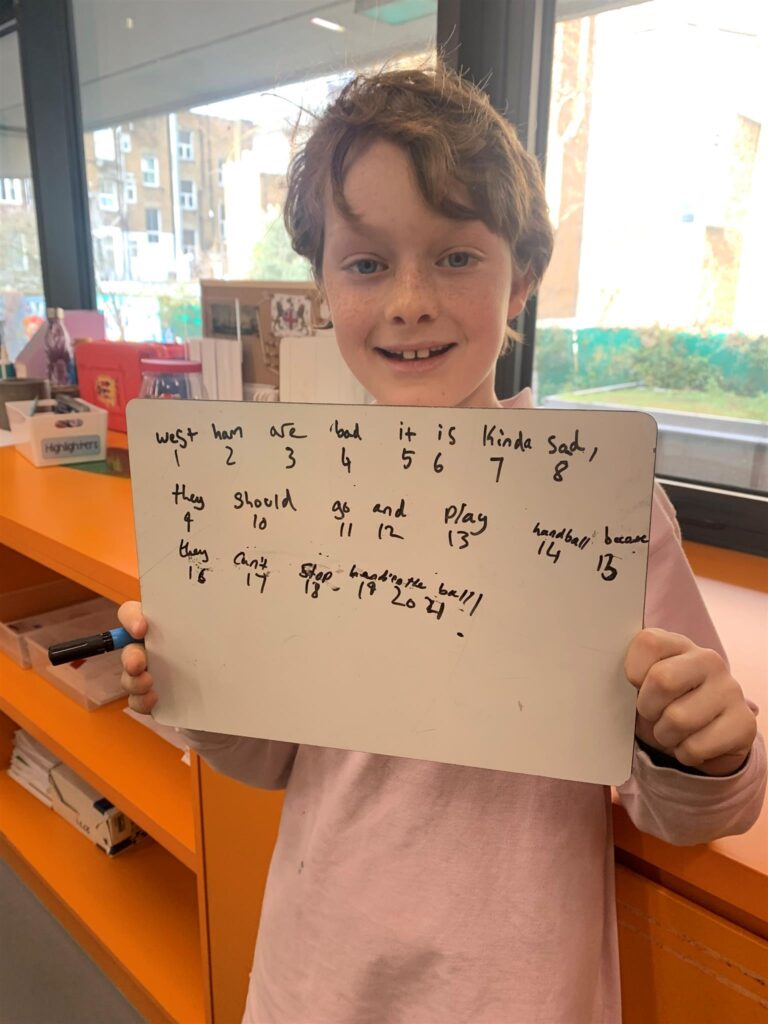 west ham are bad it is kinda sad,
1 2 3 4 5 6 7 8
they should go and play handball because
9 10 11 12 13 14 15
they can't stop handing the ball!
16 17 18 19 20 21
Highlighters